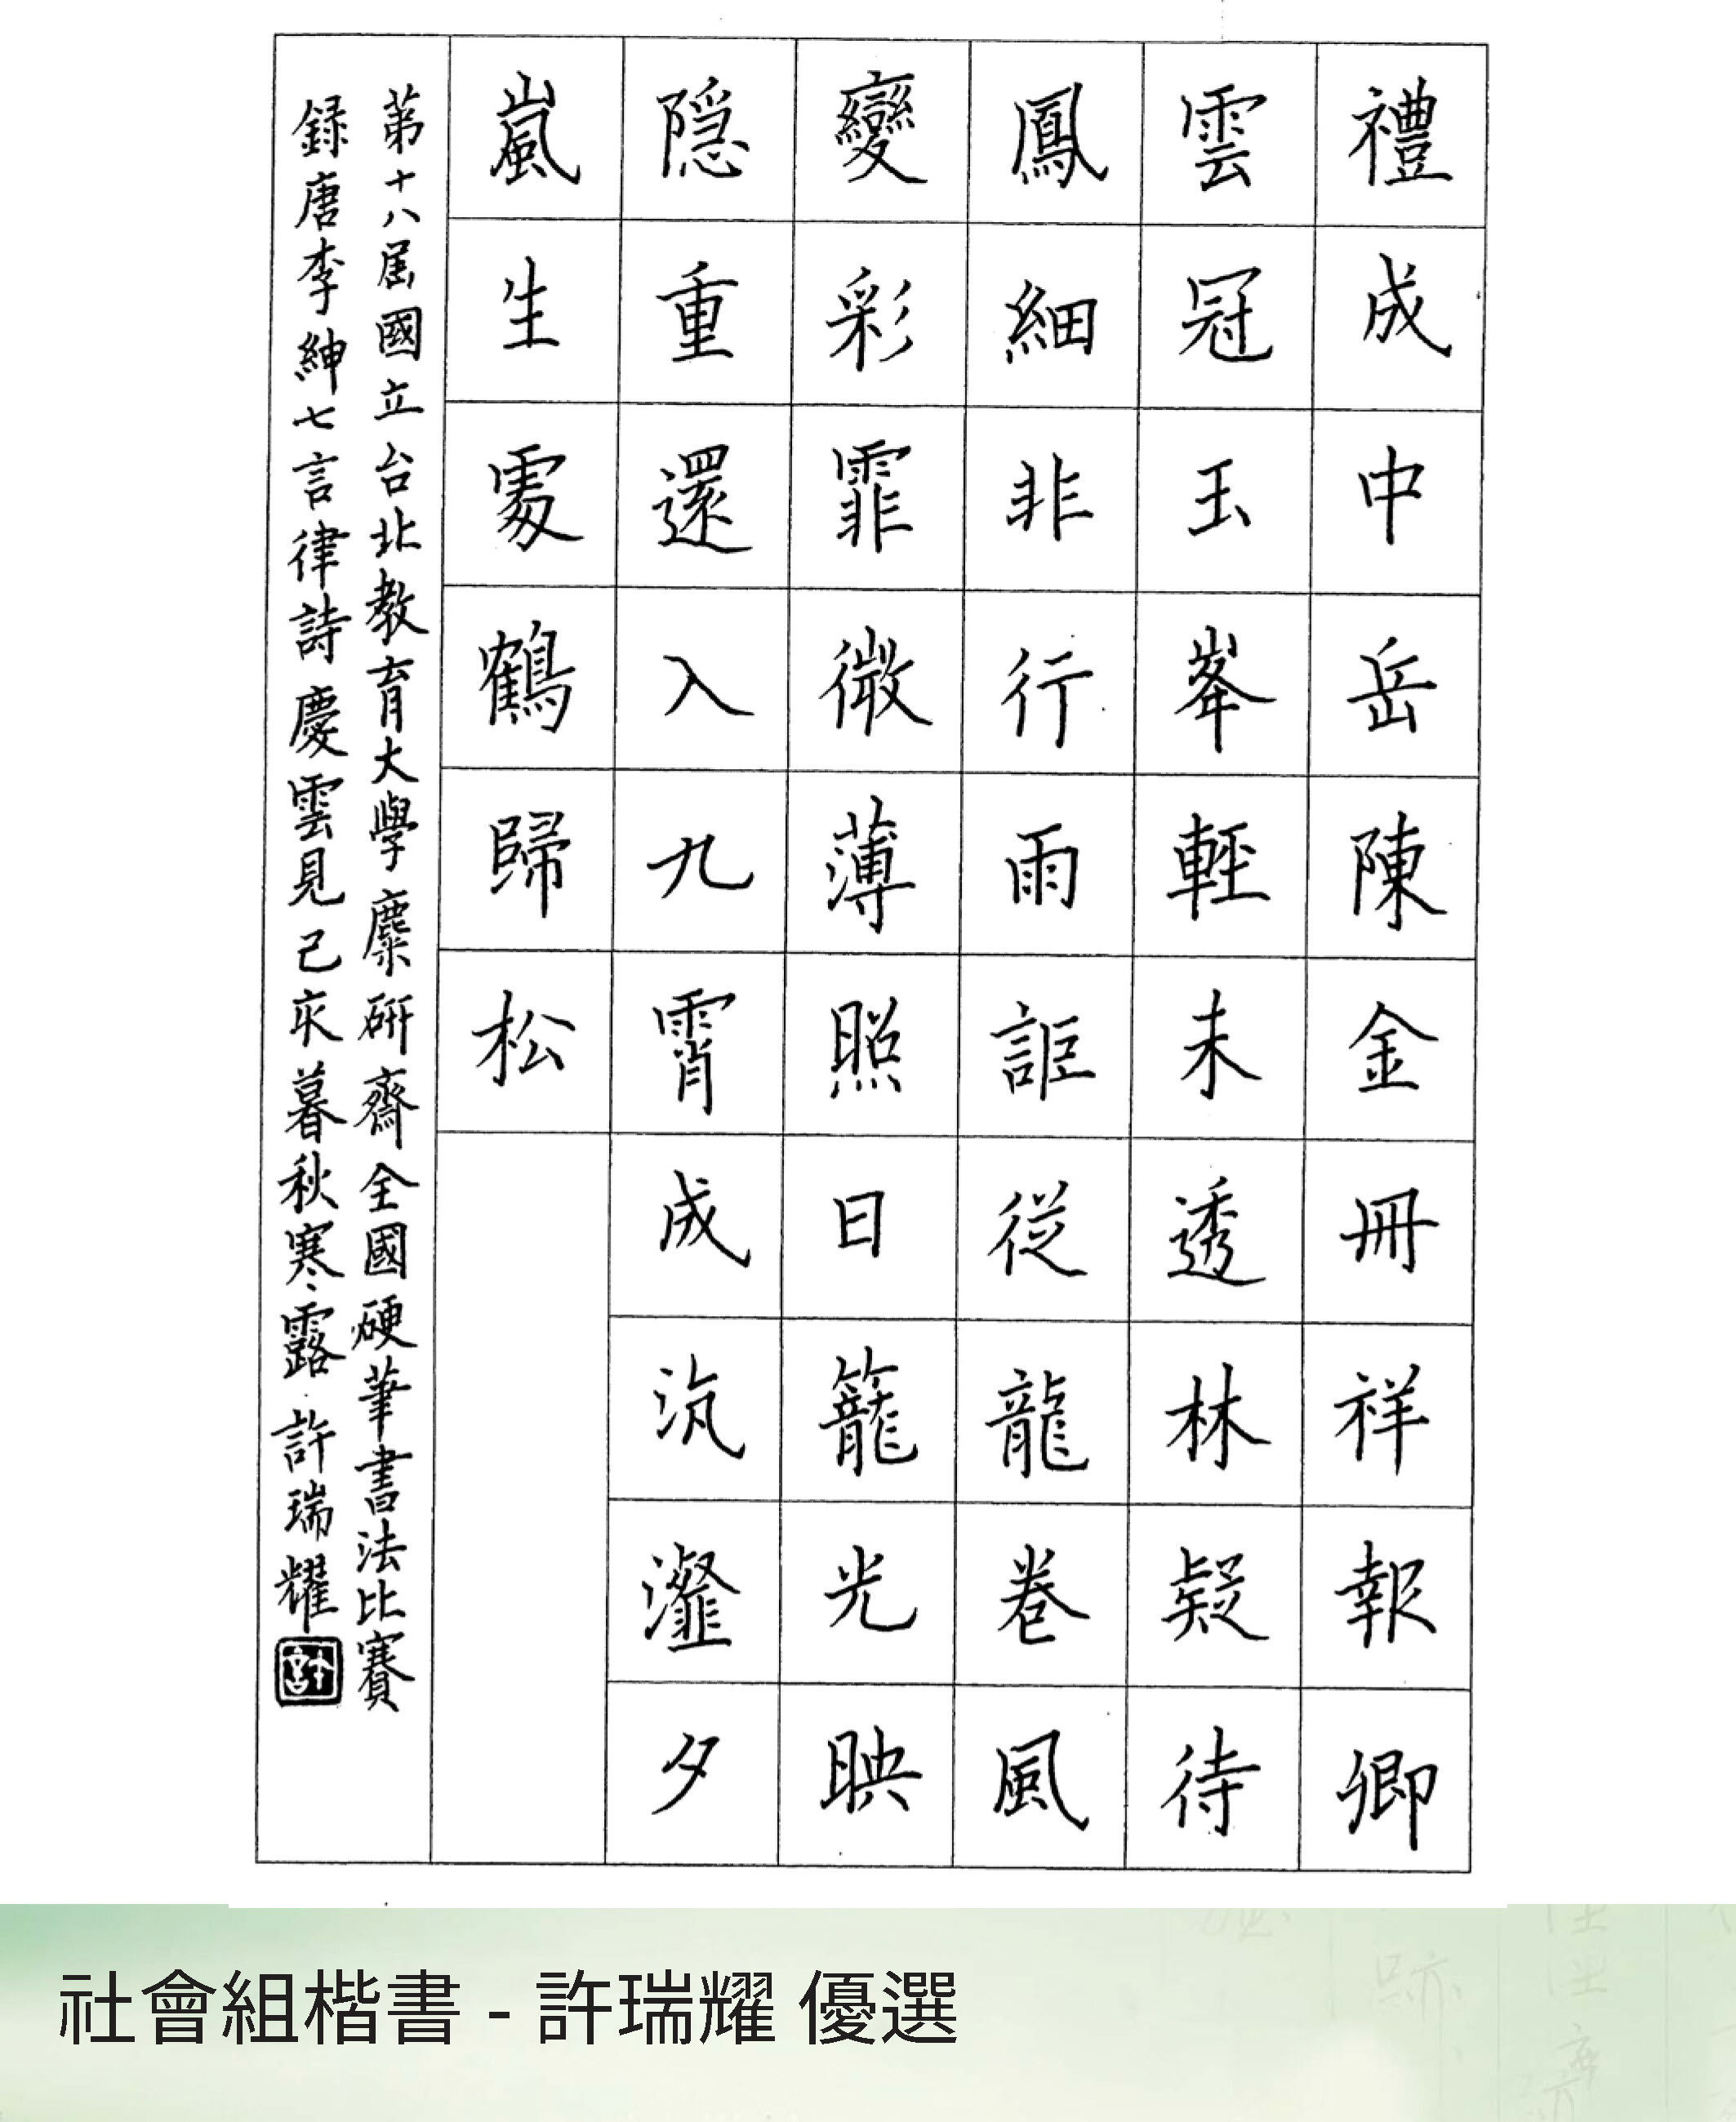 禮成中岳陳金冊祥報卿
雲冠玉峯輕未透林疑待
鳳細非行雨詎從龍卷風
變彩霏微薄照日籠光映
隠重還入九霄成沆瀣夕
嵐生處鶴歸松
第十八屆國立台北教育大學麋研齋全國硬筆書法比賽
録唐李紳七言律詩慶雲見己亥暮秋寒露許瑞耀
許
社會組楷書 - 許瑞耀 優選